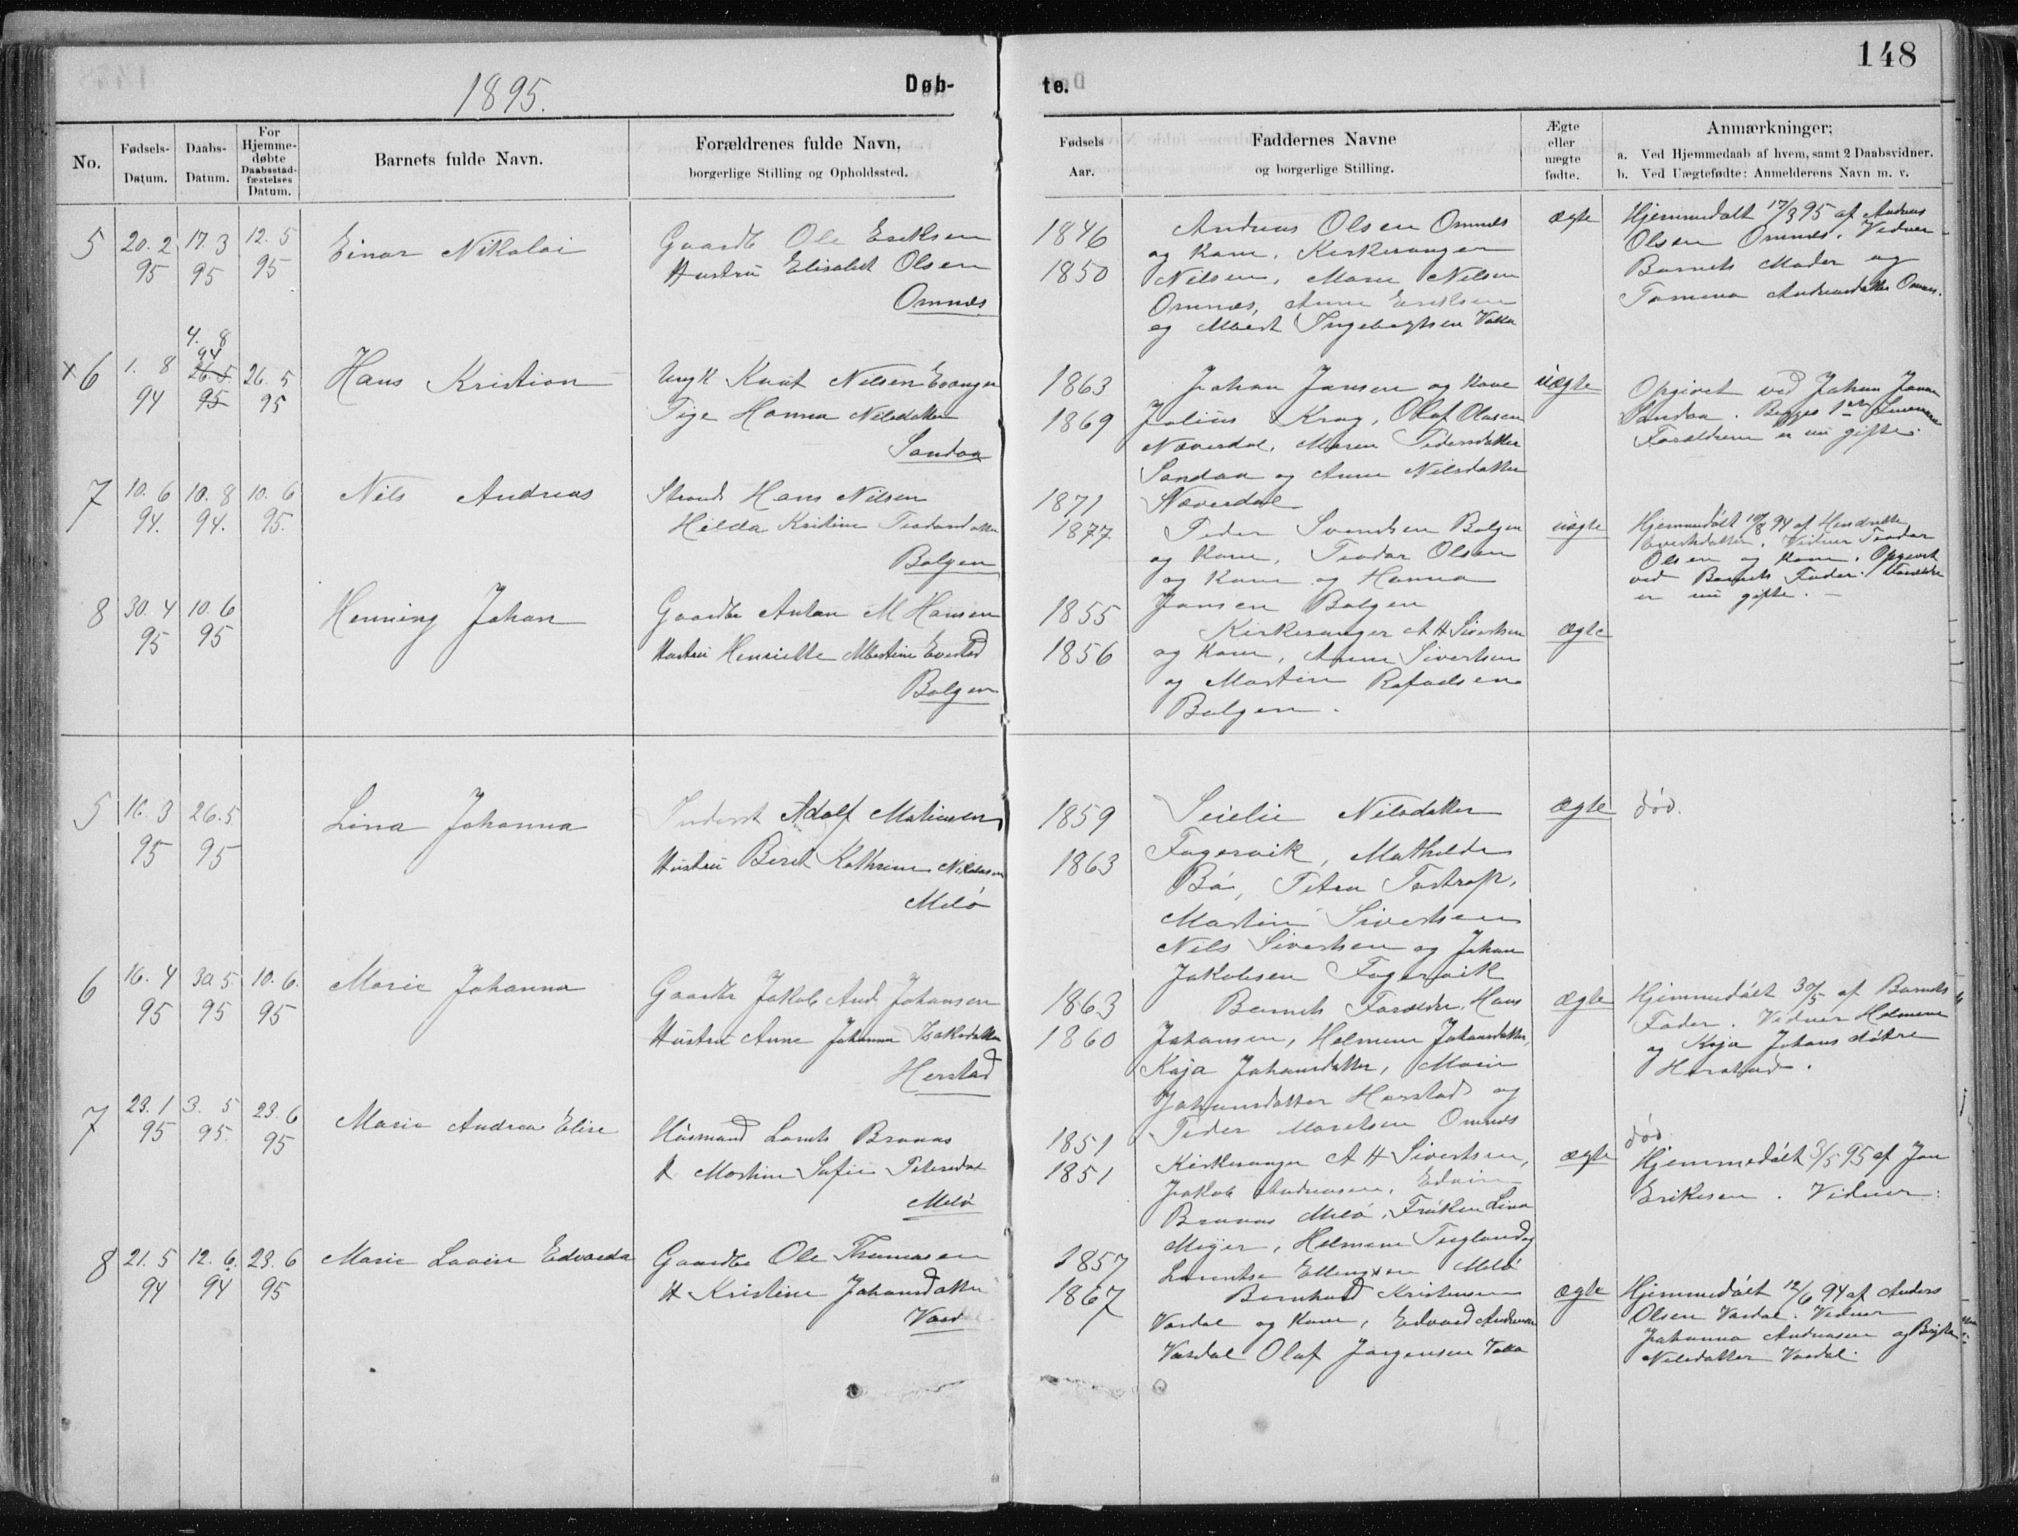 148
1895.
Døb-
te.
No.
Fødsels-
Datum.
Daabs-
Datum.
For
Hjemme-
døbte
Daabsstad-
fæstelses
Datum.
Barnets fulde Navn.
Forældrenes fulde Navn,
borgerlige Stilling og Opholdssted.
Fødsels
Aar.
Faddernes Navne
og borgerlige Stilling.
Ægte
eller
uægte
fødte.
Anmærkninger;
a. Ved Hjemmedaab af hvem, samt 2 Daabsvidner.
b. Ved Uægtefødte: Anmelderens Navn m. v.
5
20. 2
95
17. 3
95
12. 5
95
Einar Nikolai
Gaardbr Ole Eriksen
Hustru Elisabet Olsen
Omnæs
1846
1850
Andreas Olsen Omnæs
og Kone, Kirkesanger
Nilsen, Maren Nilsen
Omnæs, Anne Eriksen
og Albert Ingebrigtsen Valla
ægte
Hjemmedøbt 17/3 95 af Andreas
Olsen Omnæs. Vidner
Barnets Moder og
Tomina Andreasdatter Omnæs.
x 6
1. 8
94
4. 8
94
26. 5
95
26. 5
95
Hans Kristian
Ungk Knut Nilsen Evangen
Pige Hanna Nilsdatter
Sandaa
1863
1869
Johan Jansen og Kone
Julius Krog, Olaf Olasen
Næverdal, Maren Pedersdatter
Sandaa og Anne Nilsdatter
Næverdal
uægte
Opgivet ved Johan Jansen
Sandaa. Begges 1ste
Forældrene er nu gifte.
7
10. 6
94.
10. 8
94.
10. 6
95.
Nils Andreas
Strands Hans Nilsen
Helda Kristine Teodorsdatter
Bolgen
1871
1877
Peder Svendsen Bolgen
og Kone, Teodor Olsen
og Kone og Hanna
Jansen Bolgen
uægte
Hjemmedøbt 10/8 94 af Hendrikke
Evertsdatter. Vidner Teodor
Olsen og Kone. Opgivet
ved Barnets Fader. Forældre
er nu gifte. —
8
30. 4
95
10. 6
95
Henning Johan
Gaardbr Anton M Hansen
Hustru Henriette Albertine Evertsd
Bolgen
1855
1856
Kirkesanger A H Sivertsen
og Kone, Anne Sivertsen
og Martin Rafaelsen
Bolgen.
ægte
5
16. 3
95
26. 5
95
Lina Johanna
Inderst Adolf Matiasen
Hustru Beret Kathrine Nikolaisen
Melø
1859
1863
Seielie Nilsdatter
Fagervik, Mathilde
Bø, Petra Tostrup,
Martin Sivertsen
Nils Sivertsen og Johan
Jakobsen Fagervik
ægte
død.
6
16. 4
95
30. 5
95
10. 6.
95
Marie Johanna
Gaardbr Jakob And Johansen
Hustru Anne Johanna Isaksdatter
Herstad
1863
1860
Barnets Forældre, Hans
Johansen, Helmine Johansdatter,
Kaja Johansdatter, Marie
Johansdatter Herstad og
Peder Morelsen Omnæs
ægte
Hjemmedøbt 30/5 af Barnets
Fader. Vidner Helmine
og Kaja Johans døtre
Herstad.
7
23. 1
95
3. 5
95.
23. 6
95
Marie Andrea Elise
Husmand Lornts Brauas
H Martine Sofie Petersdat
Melø
1851
1851
Kirkesanger A H Sivertsen,
Jakob Andreasen, Edvin
Brauas Melø, Frøken Lina
Meyer, Helmine Teglund og
Lorentse Ellingsen Melø
ægte
død
Hjemmedøbt 3/5 95 af Jon
Eriksen. Vidner:
8
21. 5
94
12. 6.
94
23. 6
95
Marie Lovise Edvarda
Gaardbr Ole Thomasen
H Kristine Johansdatter
Vard
1857
1867
Bernhard Kristensen
Vardal og Kone, Edvard Andreasen
Vardal Olaf Jørgensen Valla
ægte
Hjemmedøbt 12/6 94 af Anders
Olsen Vardal. Vidner
Johanna Andreasen og Birgitte
Nilsdatter Vardal.